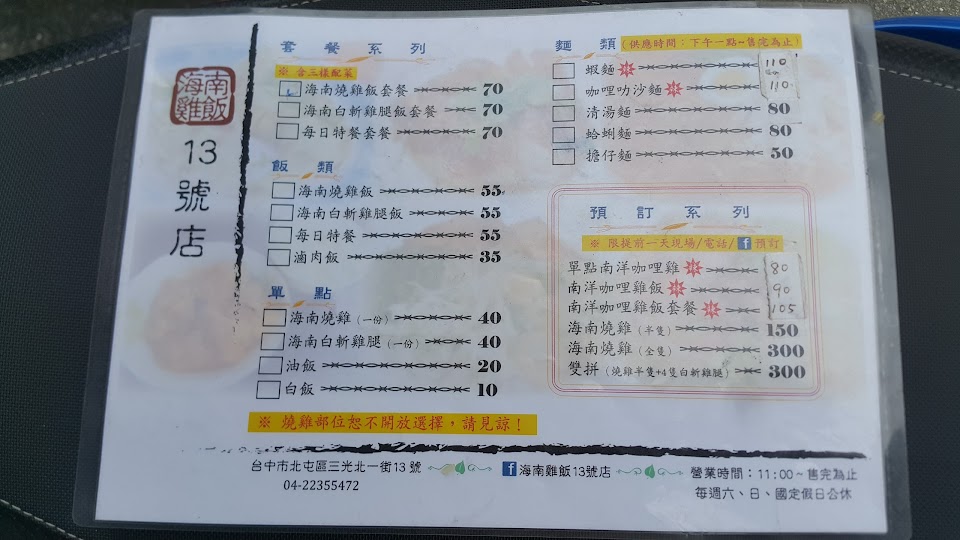 海南雞飯
13號店
套餐系列
※ 含三樣配菜
海南燒雞飯套餐 70
海南白斬雞腿飯套餐 70
每日特餐套餐 70
飯類
海南燒雞飯 55
海南白斬雞腿飯 55
每日特餐 55
滷肉飯 35
單點
海南燒雞(一份) 40
海南白斬雞腿(一份) 40
油飯 20
白飯 10
※ 燒雞部位恕不開放選擇,請見諒!
麵類(供應時間:下午一點~售完為止)
蝦麵 110
咖哩叻沙麵 110
清湯麵 80
蛤蜊麵 80
擔仔麵 50
預訂系列
※ 限提前一天現場/電話/f預訂
單點南洋咖哩雞 80
南洋咖哩雞飯 90
南洋咖哩雞飯套餐 105
海南燒雞(半隻) 150
海南燒雞(全隻) 300
雙拼(燒雞半隻+4隻白斬雞腿) 300
台中市北屯區三光北一街13號
04-22355472
f海南雞飯13號店
營業時間:11:00~售完為止
每週六、日、國定假日公休